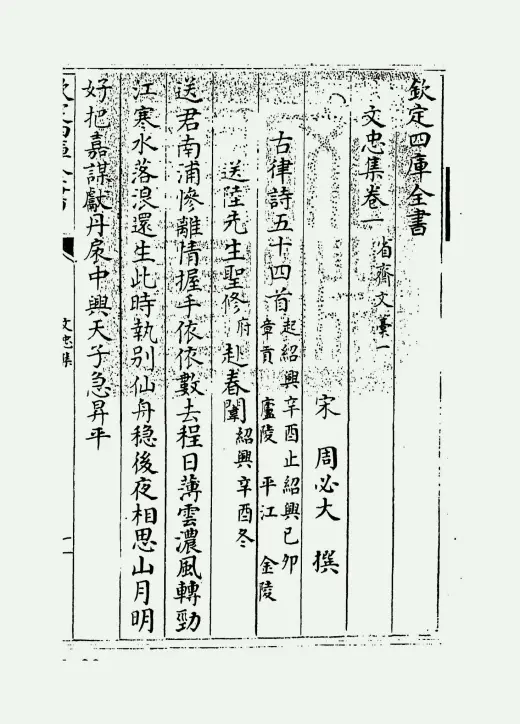 欽定四庫全書
文忠集卷一 省齋文藁一
宋 周必大 撰
古律詩五十四首 起紹興辛酉止紹興己卯
章貢 廬陵 平江 金陵
送陸先生聖修府赴春闈 紹興辛酉冬
送君南浦慘離情握手依依數去程日薄雲濃風轉勁
江寒水落浪還生此時執別仙舟穩後夜相思山月明
好把嘉謀獻丹扆中興天子急昇平
文忠集
一